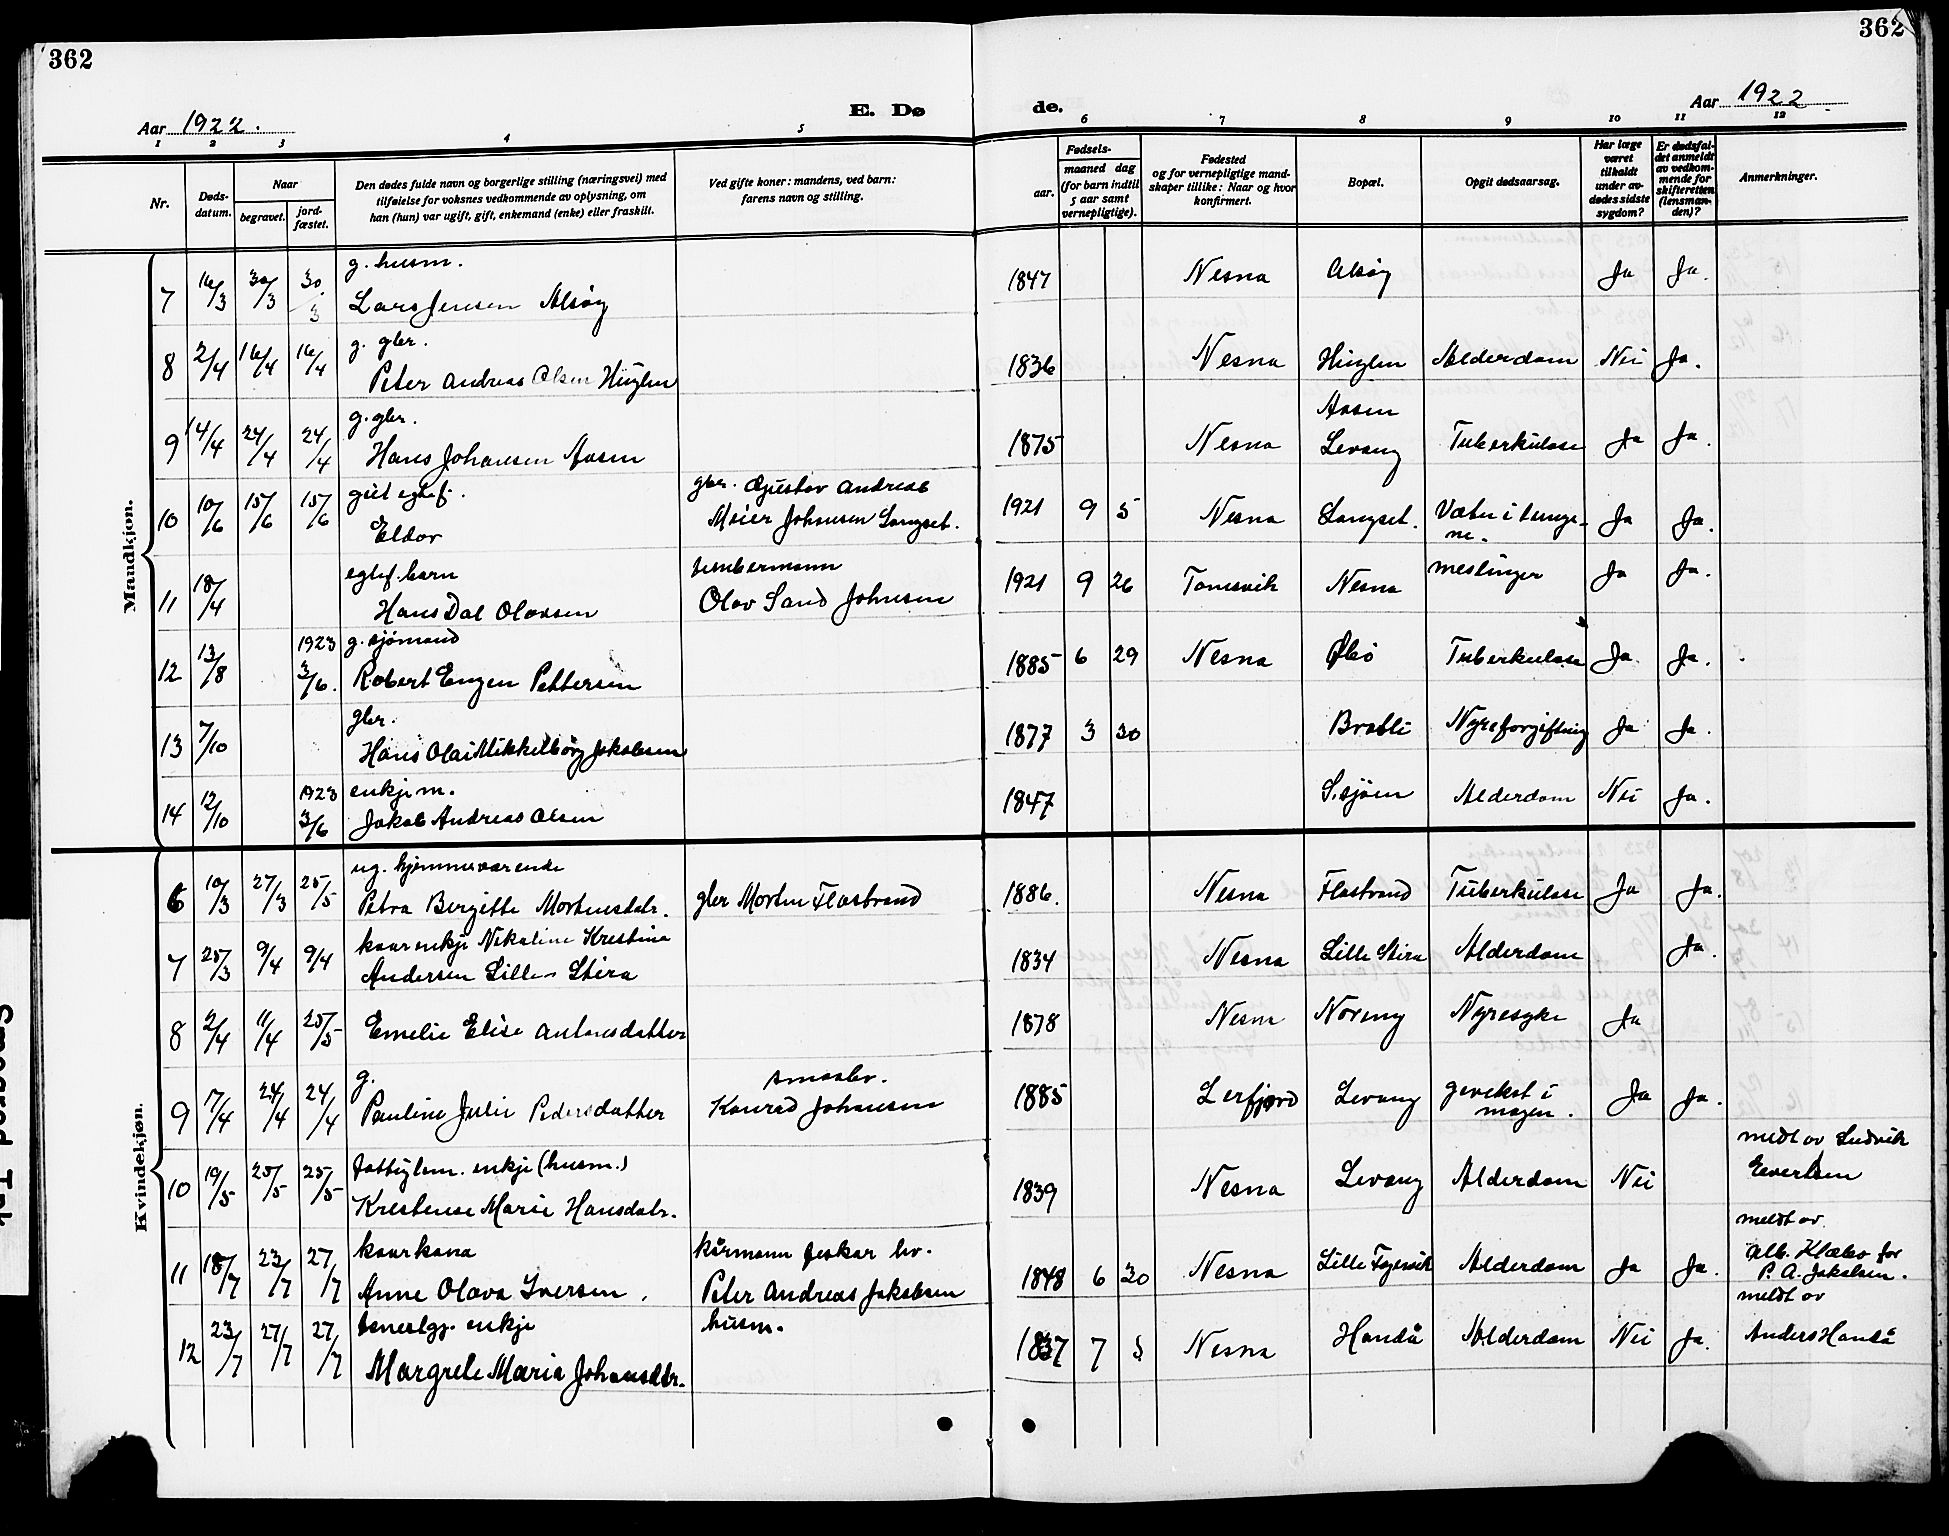 362
362
Aar 1922.
E. Døde.
Aar 1922.
1 2 3 4 5 6 7 8 9 10 11 12
Nr.
Døds-
datum.
Naar
begravet.
jord-
fæstet.
Den dødes fulde navn og borgerlige stilling (næringsvei) med
tilføielse for voksnes vedkommende av oplysning, om
han (hun) var ugift, gift, enkemand (enke) eller fraskilt.
Ved gifte koner: mandens, ved barn:
farens navn og stilling.
Fødsels-
aar.
maaned dag
(for barn indtil
5 aar samt
vernepligtige).
Fødested
og for vernepligtige mand-
skaper tillike: Naar og hvor
konfirmert.
Bopæl.
Opgit dødsaarsag.
Har læge
været
tilkaldt
under av-
dødes sidste
sygdom?
Er dødsfal-
det anmeldt
av vedkom-
mende for
skifteretten
(lensman-
den)?
Anmerkninger.
Mandkjøn.
g. husm.
7 16/3 30/3 30/3 Lars Jensen Alsøy 1847 Nesna Alsøy Ja Ja.
g. gbr.
8 2/4 16/4 16/4 Peter Andreas Olsen Huglen 1836 Nesna Huglen Alderdom Nei Ja.
g. gbr. Aasen
9 14/4 24/4 24/4 Hans Johansen Aasen 1875 Nesna Levang Tuberkulose Ja Ja.
gut egtef. gbr. Gjustav Andreas
10 10/6 15/6 15/6 Eldor Meier Johansen Langset. 1921 9 5 Nesna Langset. Væter i lunge-
ne. Ja Ja.
egtef. barn tømbermann
11 18/4 Hans Dal Olavsen Olav Sand Johnsen 1921 9 26 Tomsvik Nesna meslinger Ja Ja.
1923 g. sjømand
12 13/8 3/6. Robert Eugen Pettersen 1885 6 29 Nesna Øbø Tuberkulose Ja Ja.
gbr.
13 7/10 Hans Olai Mikkelborg Jakobsen 1877 3 30 Bratli Nyreforgiftning Ja Ja.
1923 enkjem.
14 12/10 3/6 Jakob Andreas Olsen 1847 S.sjøen Alderdom Nei Ja.
Kvindekjøn.
ug. hjemmeværende
6 10/3 27/3 25/5 Petra Bergitte Mortensdatr. gbr Morten Flostrand 1886. Nesna Flostrand Tuberkulose Ja Ja.
kaarenkje Nikoline Kristina
7 25/3 9/4 9/4 Andersen Lille Stira 1834 Nesna Lille Stira Alderdom Ja.
8 2/4 11/4 25/5 Emelie Elise Antonsdatter 1878 Nesna Noreng Nyresyke Ja
g. smaabr.
9 17/4 24/4 24/4 Pauline Julie Pedersdatter Konrad Johansen 1885 Lerfjord Levang gevekst i
magen. Ja Ja.
fattiglem. enkje (husm.) meldt av Ludvik
10 19/5 25/5 25/5 Krestense Marie Hansdatr. 1839 Nesna Levang Alderdom Nei Evertsen
kaarkona kårmann fisker hv. meldt av
11 18/7 23/7 27/7 Anne Olava Iversen. Peter Andreas Jakobsen 1848 6 30 Nesna Lille Fagervik Alderdom Ja Ja. Alb. Klæbo for
P. A. Jakobsen.
enkje husm. meldt av
12 23/7 27/7 27/7 Margrele Maria Johansdtr. 1837 7 5 Nesna Handå Alderdom Nei Ja. Anders Handå